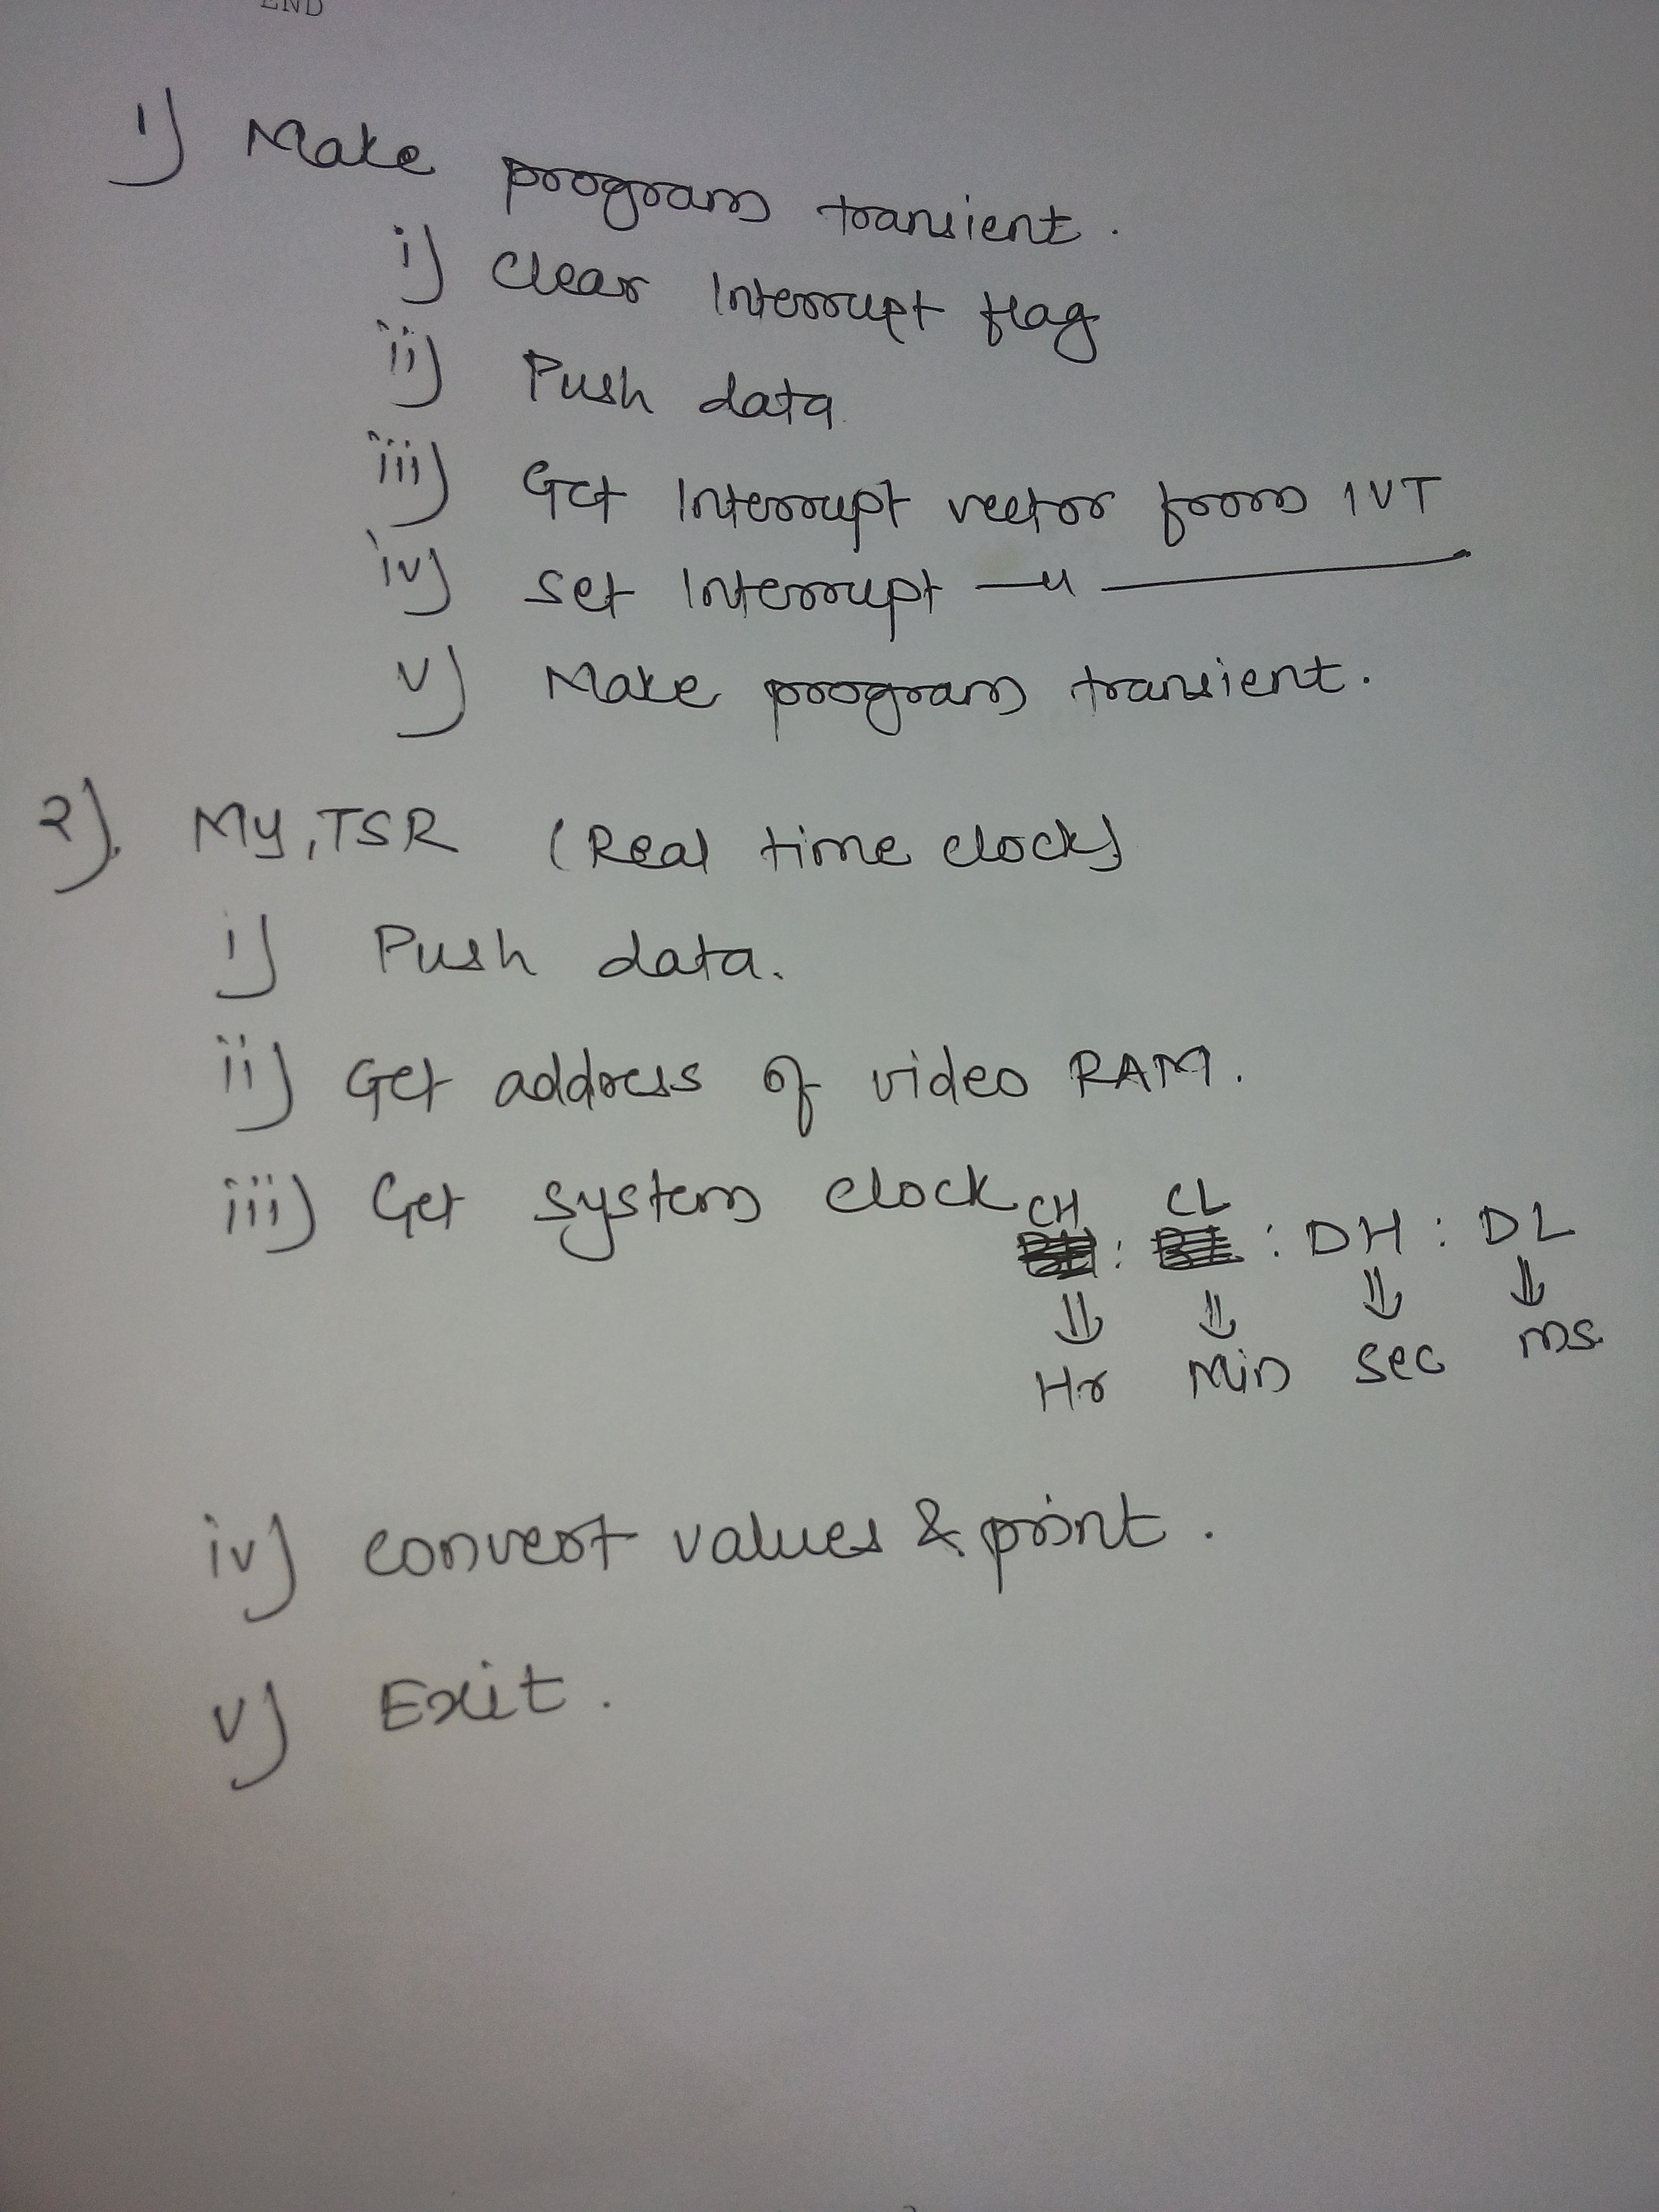 END
1) Make program transient.
i) Clear Interrupt flag
ii) Push data
iii) Get Interrupt vector from IVT
iv) Set Interrupt —〃———
v) Make program transient.
2). My,TSR (Real time clock)
i) Push data.
ii) Get address of video RAM.
iii) Get system clock CH : CL : DH : DL
⇓ ⇓ ⇓ ⇓
Hr Min Sec ms.
iv) convert values & print.
v) Exit.